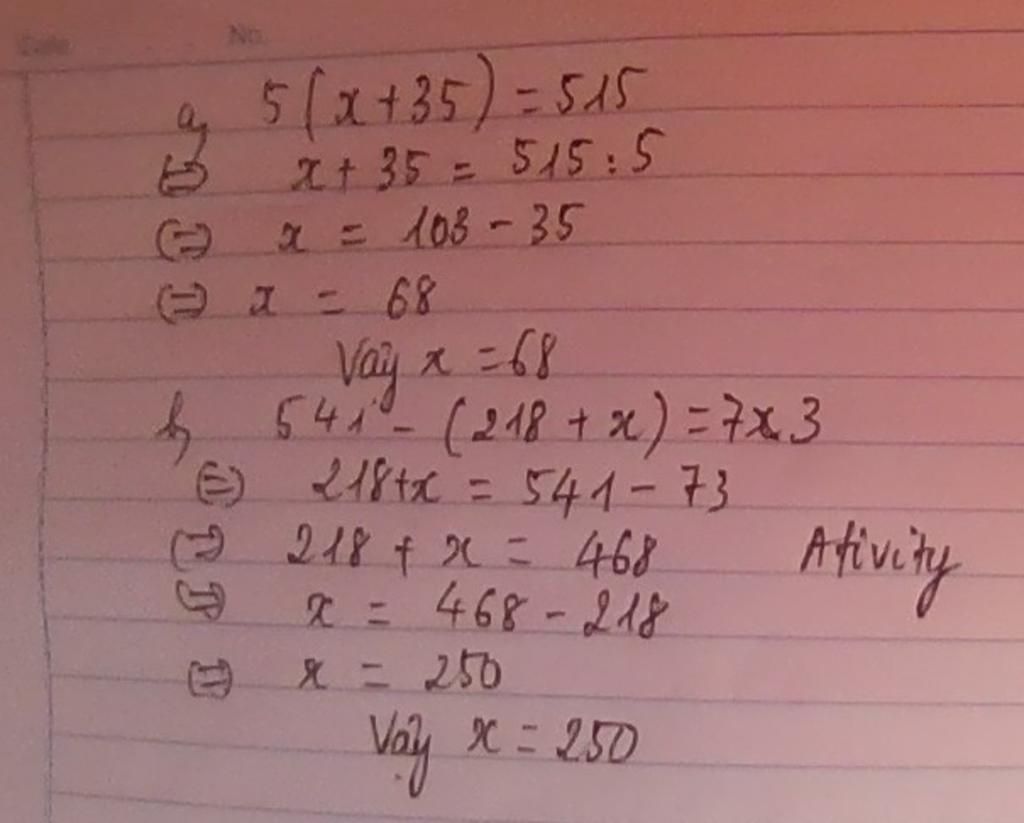 Date No.
a, 5(x+35) = 515
⇔ x + 35 = 515 : 5
⇔ x = 103 - 35
⇔ x = 68
Vậy x = 68
b, 541 - (218 + x) = 7x3
⇔ 218+x = 541 - 73
⇔ 218 + x = 468 Ativity
⇔ x = 468 - 218
⇔ x = 250
Vậy x = 250